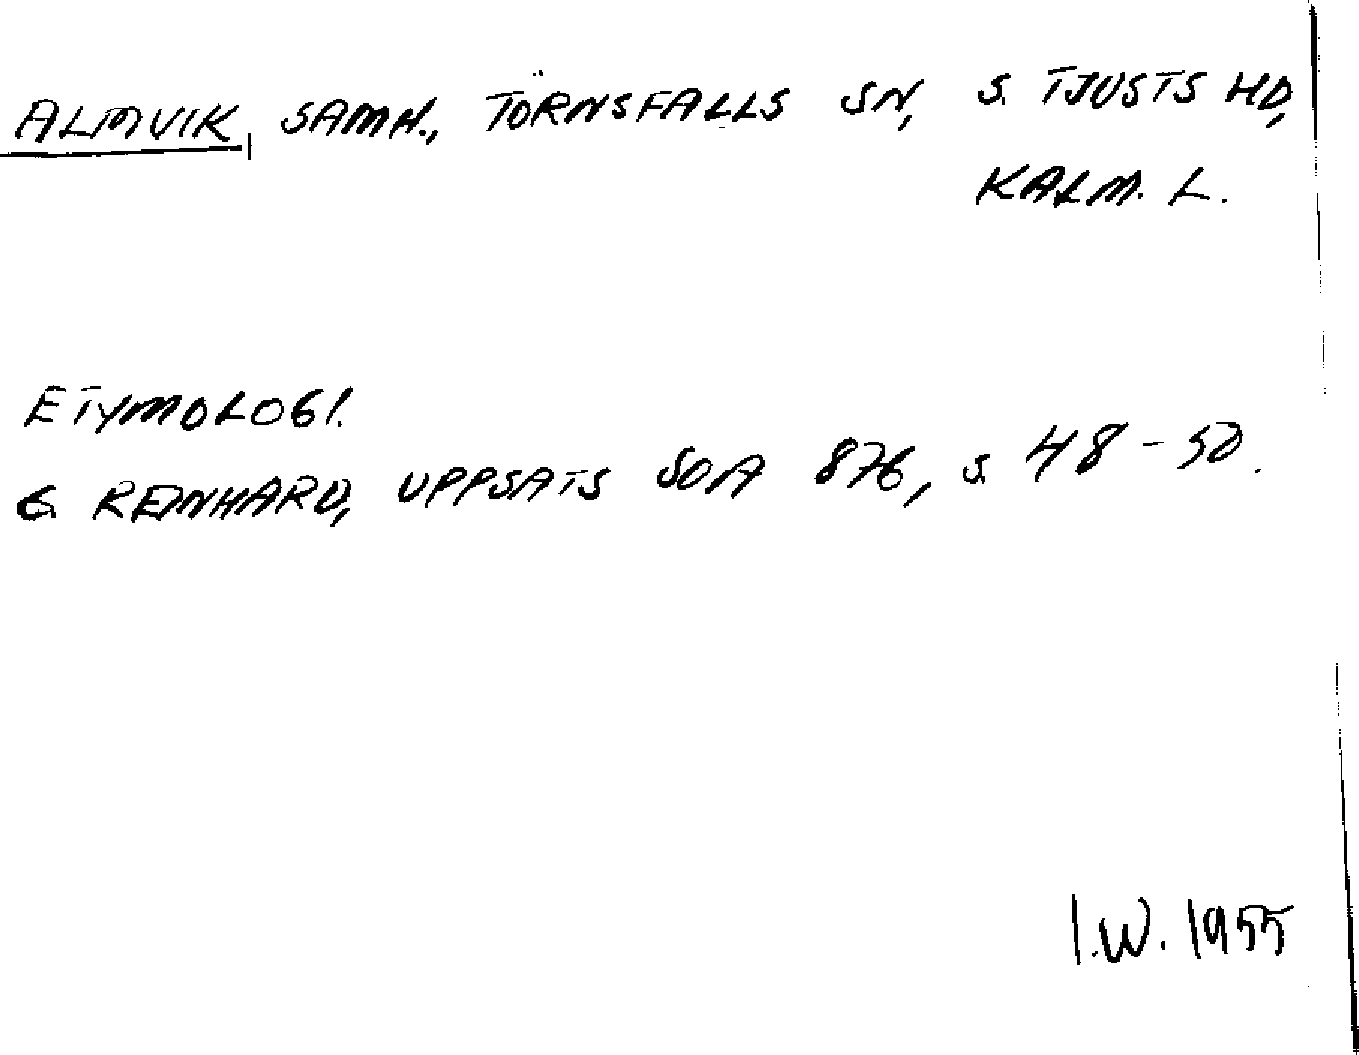 ALMVIK, SAMH., TÖRNSFALLS SN, S. TJUSTS HD,
KALM. L.
ETYMOLOGI.
G. REINHARD, UPPSATS SOA 876, S. 48-50.
I.W. 1955